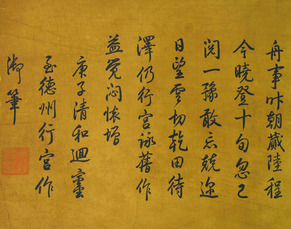 舟事昨朝蕆陸程
今曉登十旬忽已
閱一豫敢忘兢迎
日望雲切乾田待
澤仍行宮詠舊作
益覺悶懷增
庚子清和迴蹕
至德州行宮作
御筆